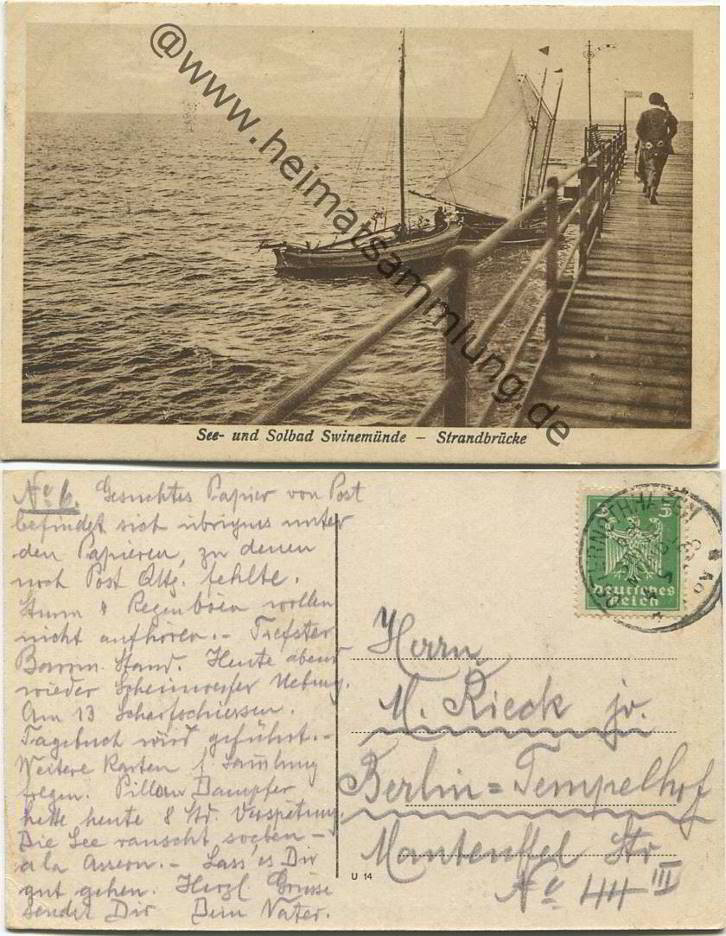 @www.heimatsammlung.de
See- und Solbad Swinemünde – Strandbrücke
No 6. Gesuchtes Papier von Post
befindet sich übrigens unter
den Papieren, zu denen
noch Post Qttg. fehlte.
Sturm & Regenböen wollen
nicht aufhören.- Tiefster
Barom. Stand. Heute abend
wieder Scheinwerfer Uebung.
Am 13 Scharfschiessen.
Tagebuch wird geführt.-
Weitere Karten f. Samlung
folgen. Pillau Dampfer
hatte heute 8 Std. Verspätung
Die See rauscht soeben -
a la Assern.- Lass es Dir
gut gehen. Herzl Grüsse
sendet Dir Dein Vater.
U 14
5
Deutsches
Reich
Herrn
M. Rieck jr.
Berlin=Tempelhof
Manteuffel Str
No 44 III